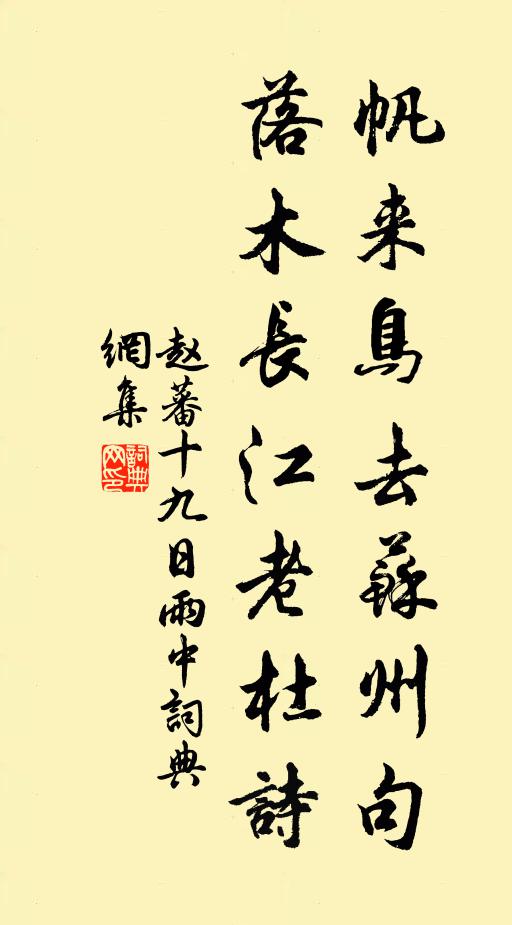 帆来鳥去蘇州句
落木長江老杜詩
赵蕃十九日雨中詞典
網集
詞典
网印